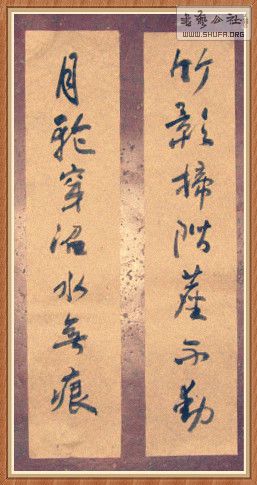 書藝公社
WWW.SHUFA.ORG
竹影掃階塵不動
月輪穿沼水無痕